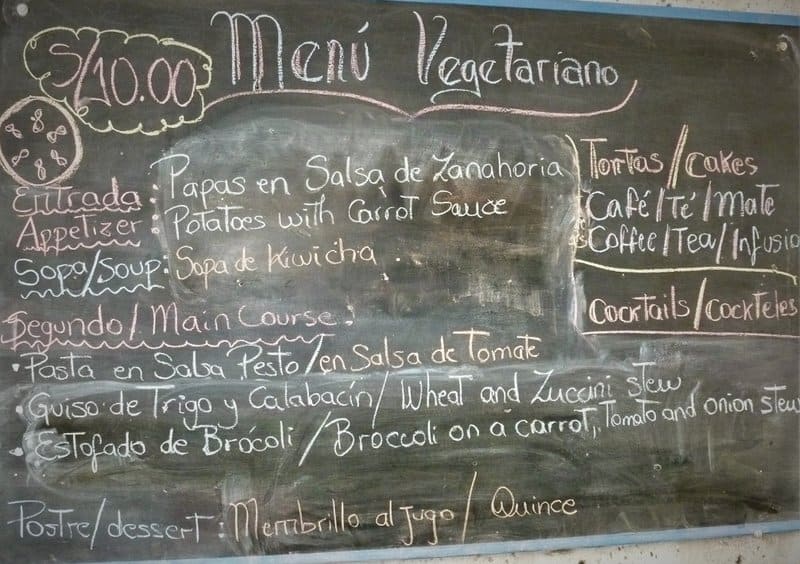 S/10.00
Menú Vegetariano
Entrada : Papas en Salsa de Zanahoria
Appetizer : Potatoes with Carrot Sauce
Sopa/Soup: Sopa de Kiwicha .
Segundo/Main Course:
• Pasta en Salsa Pesto/en Salsa de Tomate
• Guiso de Trigo y Calabacín/Wheat and Zuccini stew
• Estofado de Brócoli/Broccoli on a carrot, Tomato and onion stew
Postre/dessert: Membrillo al jugo/Quince
Tortas/Cakes
Café/Té/Mate
Coffee/Tea/Infusio
Cocktails/Cockteles